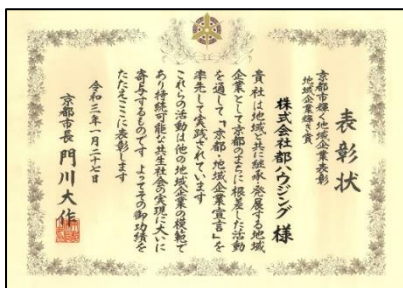 表彰状
京都市輝く地域企業表彰
地域企業輝き賞
株式会社都ハウジング 様
貴社は地域と共に継承・発展する地域
企業として京都のまちに根差した活動
を通して、「京都・地域企業宣言」を
率先して実践されています
これらの活動は他の地域企業の模範で
あり持続可能な共生社会の実現に大いに
寄与するものです よってその御功績を
たたえここに表彰します
令和三年一月二十七日
京都市長 門川大作